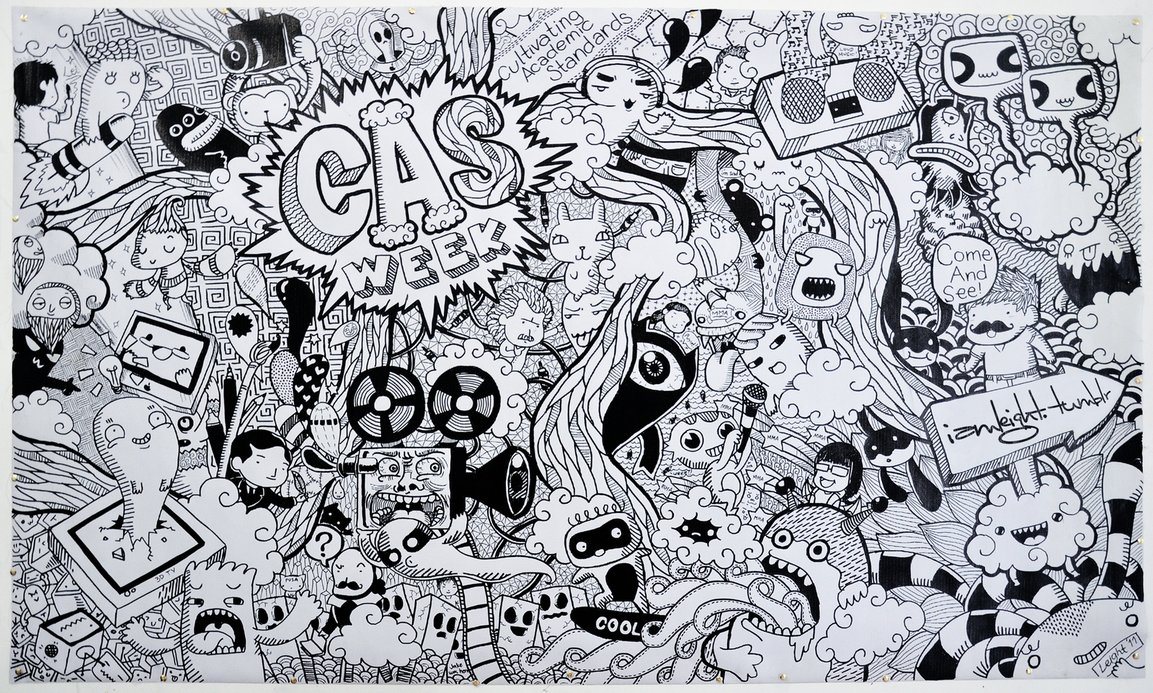 Cultivating
Academic
Standards
LOUD
MUSIC
CAS
WEEK
Come
And
See!
iamleight.tumblr
3D TV
?
COOL
Leight '11